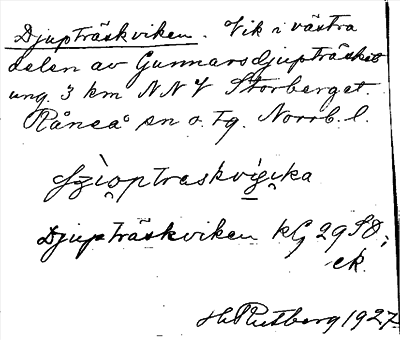 Djupträskviken. Vik i västra
delen av Gunnarsdjupträsket
ung. 3 km NNV Storberget.
Råneå sn o. tg. Norrb. l.
Djupträskviken kG 29 SO;
ek.
H. Rutberg 1927.